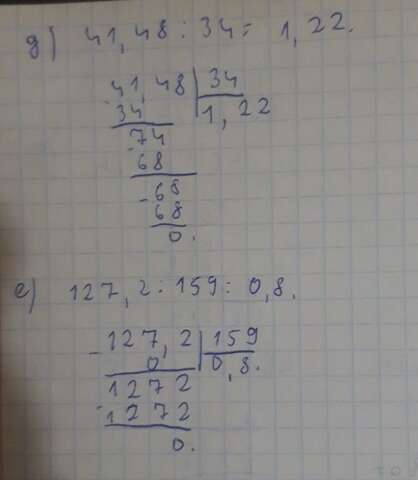 д) 41,48 : 34 = 1,22.
41,48 34
- 34 1,22
74
- 68
68
- 68
0.
е) 127,2 : 159 = 0,8.
- 127,2 159
0 0,8.
1272
- 1272
0.